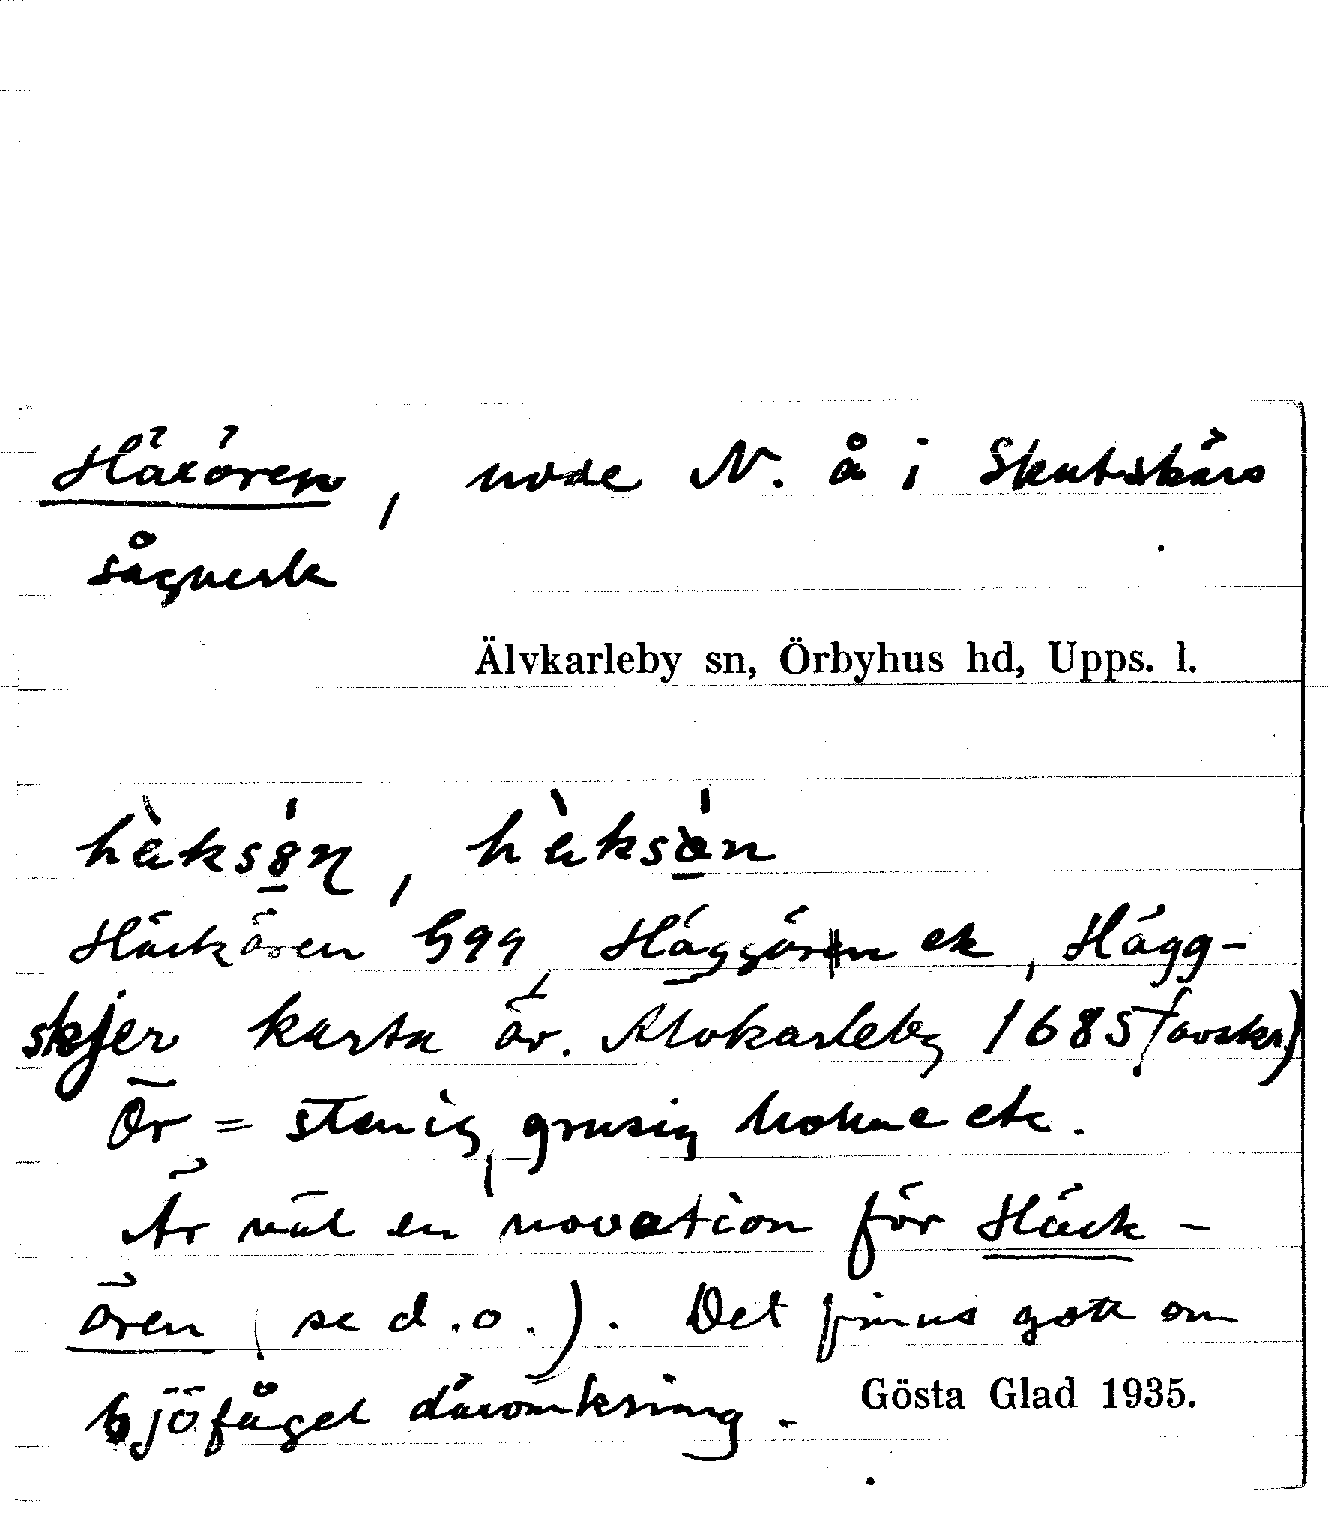 Häxören, udde N. å i Skutskärs
sågverk
Älvkarleby sn, Örbyhus hd, Upps. l.
hàksö́n, hàksö́n
Häckören G99, Häggören ek, Hägg-
skjer karta öv. Älvkarleby 1685 (avskr.)
Ör = stenig, grusig holme etc.
Är väl en novation för Häck-
ören (se d.o.). Det finns gott om
sjöfågel däromkring.
Gösta Glad 1935.